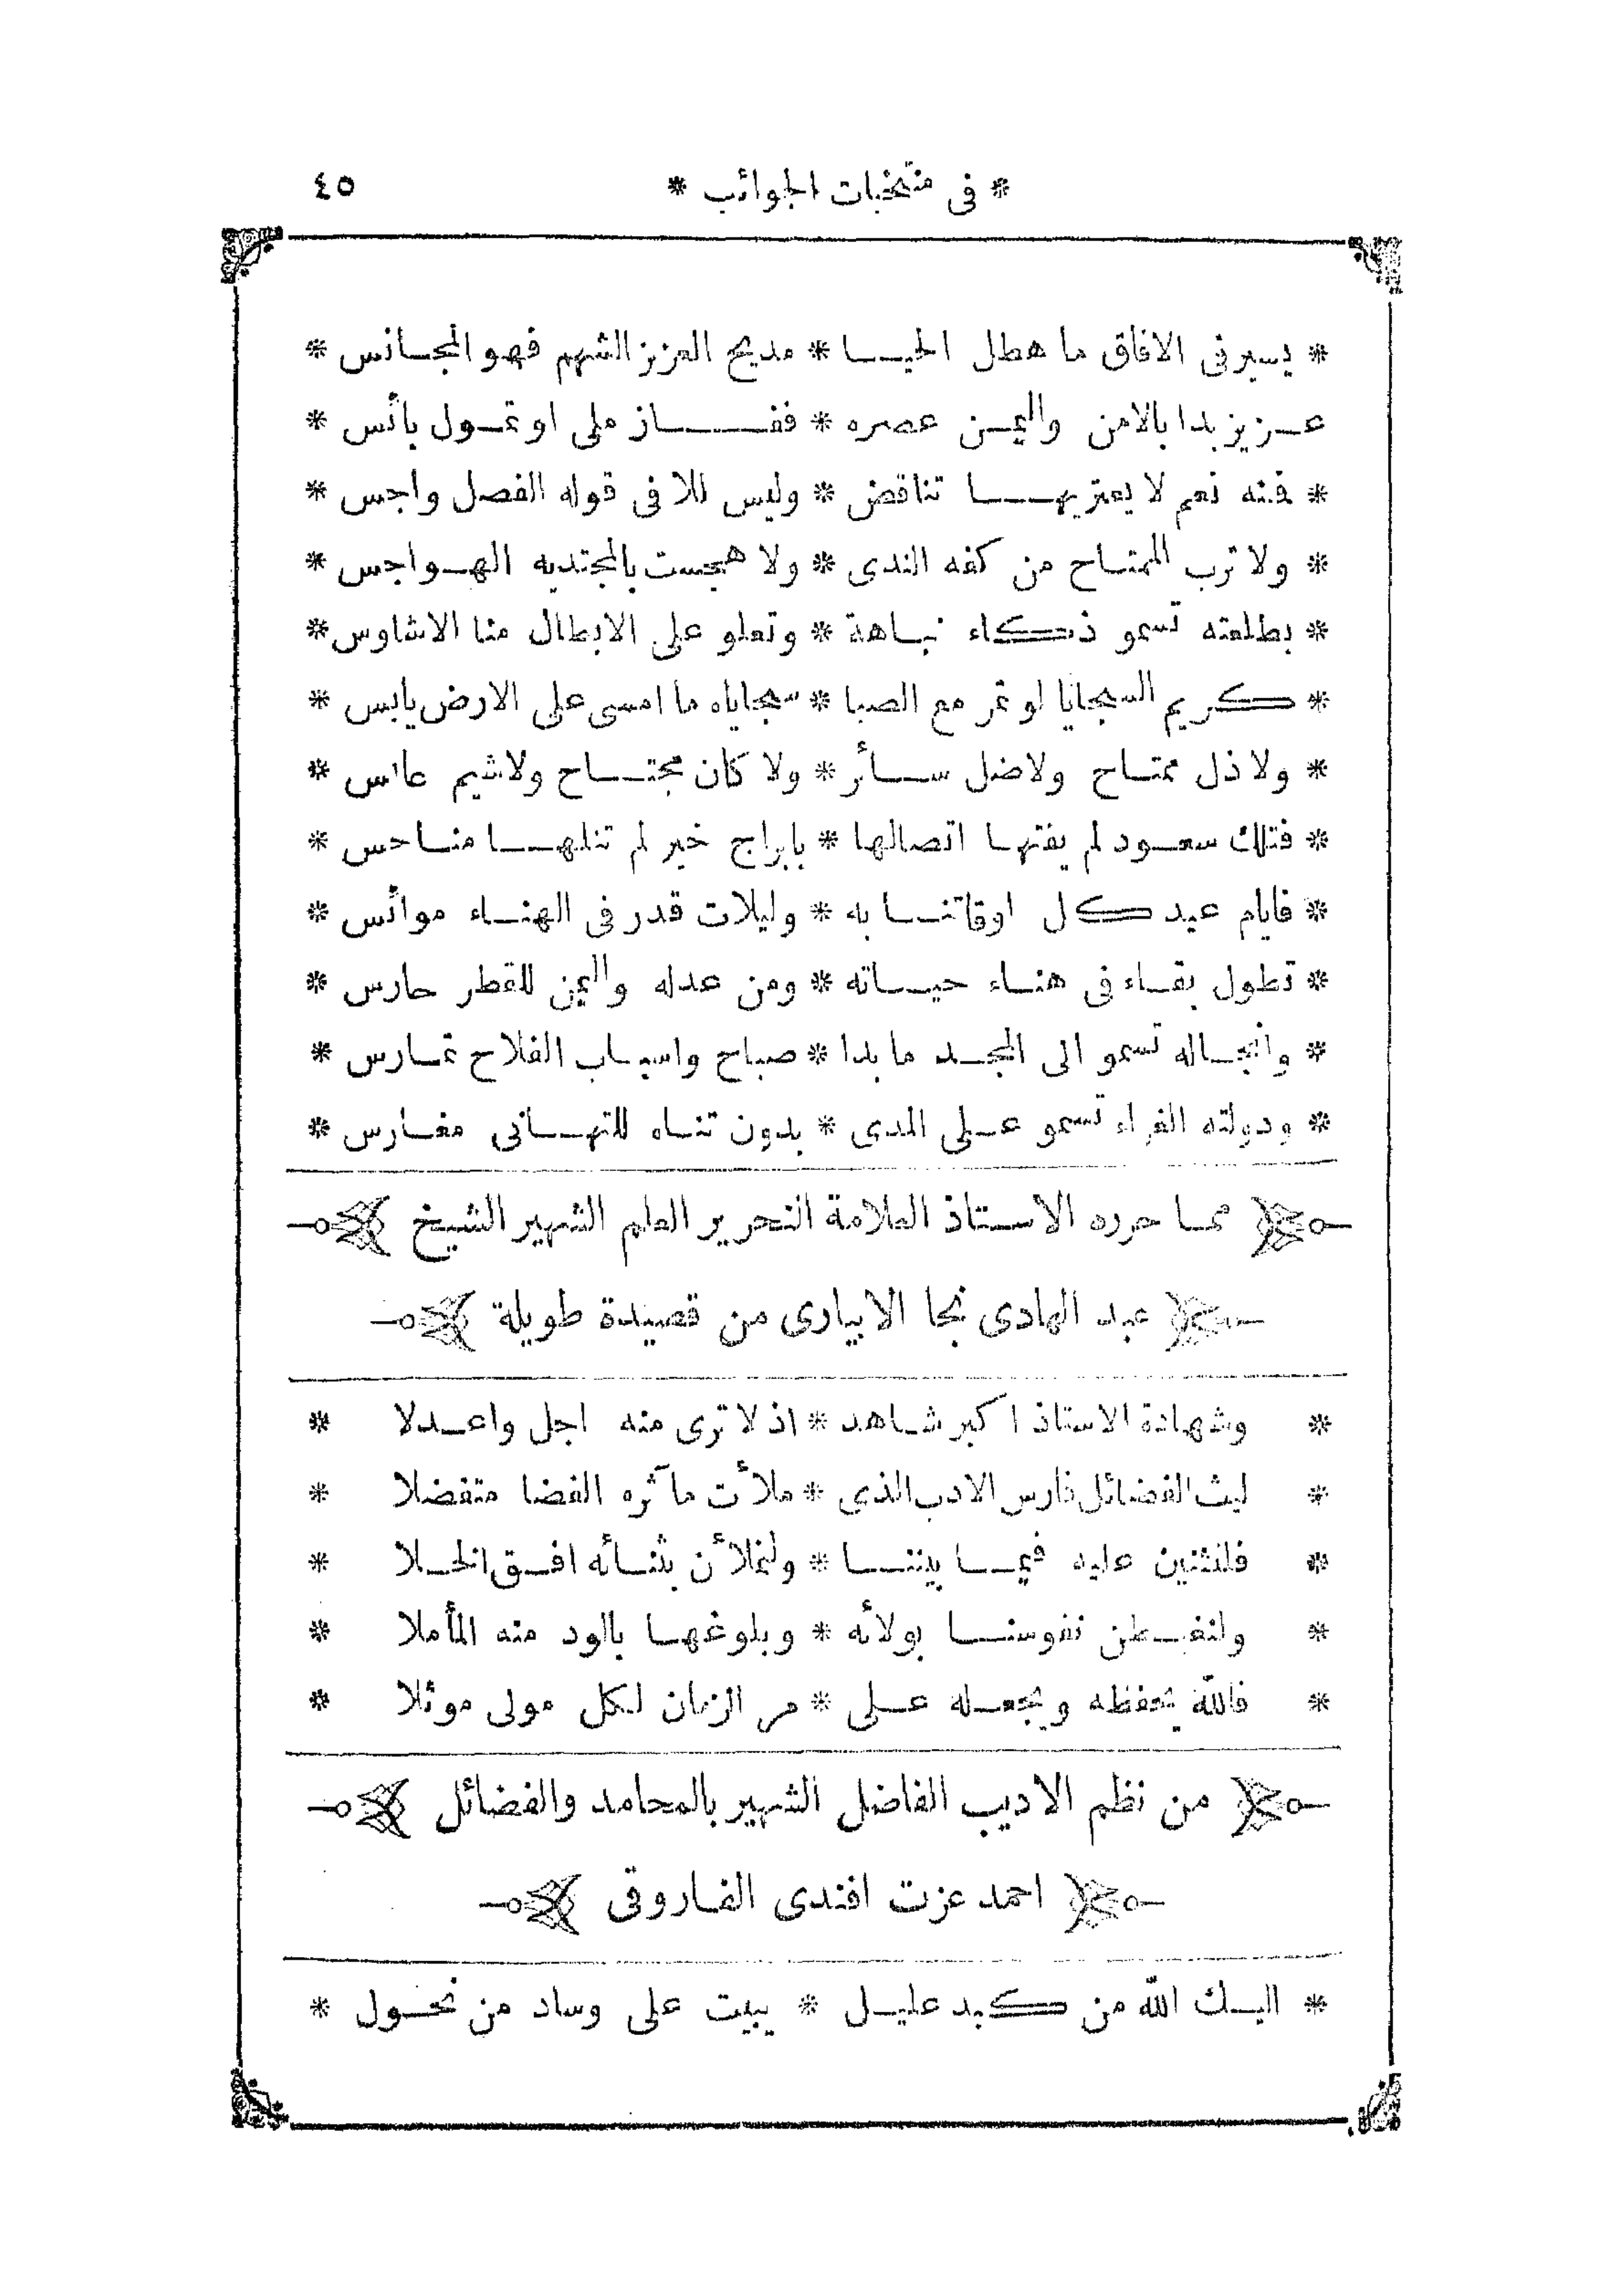 * فى منتخبات الجوائب * ٤٥
* يسير فى الافاق ما هطل الحيا * مديح العزيز الشهم فهو المجانس *
عزيز بدا بالامن واليمن عصره * ففاز ملى او تمول بائس *
* فمنه نعم لا يعتريها تناقض * وليس للا فى قوله الفصل واجس *
* ولا ترب الممتاح من كفه الندى * ولا هجست بالمجتديه الهواجس *
* بطلعته تسمو ذكاء نباهة * وتعلو على الابطال منا الاشاوس *
* كريم السجايا لو تمر مع الصبا * سجاياه ما امسى على الارض يابس *
* ولا ذل ممتاح ولا ضل سائر * ولا كان مجتاح ولا شيم عابس *
* فتلك سعود لم يفتها اتصالها * بابراج خير لم تنلها مناحس *
* فايام عيد كل اوقاتنا به * وليلات قدر فى الهناء موائس *
* تطول بقاء فى هناء حياته * ومن عدله واليمن للقطر حارس *
* وانجاله تسمو الى المجد ما بدا * صباح واسباب الفلاح تمارس *
* ودولته الغراء تسمو على المدى * بدون تناه للتهانى مغارس *
مما حرره الاستاذ العلامة النحرير العلم الشهير الشيخ
عبد الهادى نجا الابيارى من قصيدة طويلة
* وشهادة الاستاذ اكبر شاهد * اذ لا ترى منه اجل واعدلا *
* ليث الفضائل فارس الادب الذى * ملأت مآثره الفضا متفضلا *
* فلنثنين عليه فيما بيننا * ولنملأن بثنائه افق الخلا *
* ولنغبطن نفوسنا بولائه * وبلوغها بالود منه المأملا *
* فالله يحفظه ويجعله على * مر الزمان لكل مولى موئلا *
من نظم الاديب الفاضل الشهير بالمحامد والفضائل
احمد عزت افندى الفاروقى
* اليك الله من كبد عليل * يبيت على وساد من نحول *